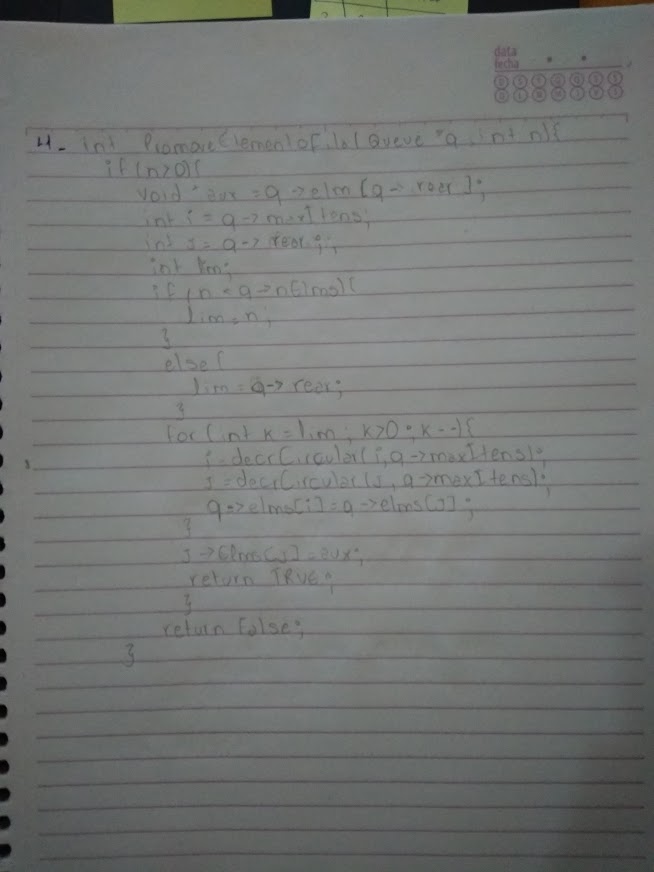 data
fecha
D S T Q Q S S
D L M M J V S
4- int PromoveElementofila(Queue *q, int n){
if(n>0){
void *aux = q->elm[q->rear];
int i = q->maxItens;
int j = q->rear;;
int lim;
if (n < q->nElms){
lim = n;
}
else{
lim = q->rear;
}
for(int k = lim; k>0; k--){
i=decrCircular(i,q->maxItens);
j=decrCircular(j, q->maxItens);
q->elms[i]=q->elms[j];
}
j->Elms[j]=aux;
return TRUE;
}
return False;
}